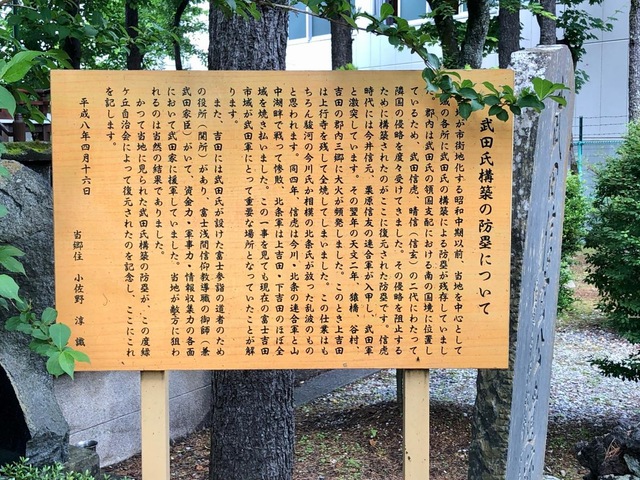 武田氏構築の防塁について
が市街地化する昭和中期以前、当地を中心として
域の各所に武田氏の構築による防塁が残存していまし
。郡内は武田氏の領国支配における南の国境に位置し
ているため、武田信虎、晴信（信玄）の二代にわたって、
隣国の侵略を度々受けてきました。その侵略を阻止する
ために構築されたのがここに復元された防塁です。信虎
時代には今井信元、栗原信友の連合軍が入甲し、武田軍
と激突しています。その翌年の天文二年、猿橋、谷村、
吉田の郡内三郷で大火が頻発しました。このとき上吉田
は上行寺を残して全焼してしまいました。この仕業はも
ちろん駿河の今川氏か相模の北条氏が放った乱波のもの
と思われます。同四年、信虎は今川・北条の連合軍と山
中湖畔で戦って惨敗、北条軍は上吉田・下吉田のほぼ全
域を焼き払いました。この一事を見ても現在の富士吉田
市域が武田軍にとって重要な場所となっていたことが解
ります。
また、吉田には武田氏が設けた富士参詣の道者のため
の役所（関所）があり、富士浅間信仰教導職の御師（兼
武田家臣）がいて、資金力・軍事力・情報収集力の各面
において武田家に援軍していました。当地が敵方に狙わ
れるのは当然の結果でありました。
かつて各地に見られた武田氏構築の防塁が、この度緑
ヶ丘自治会によって復元されたのを記念し、ここにこれ
を記します。
平成八年四月十六日
当郷住 小佐野 淳 識